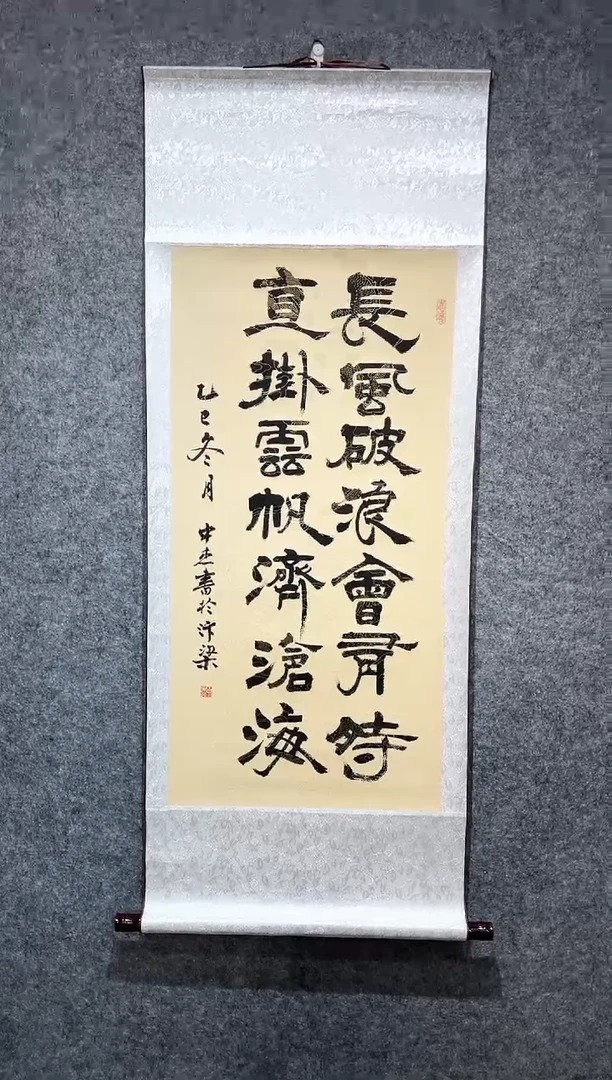 長風破浪會有時
直掛雲帆濟滄海
乙巳冬月 中杰書於汴梁